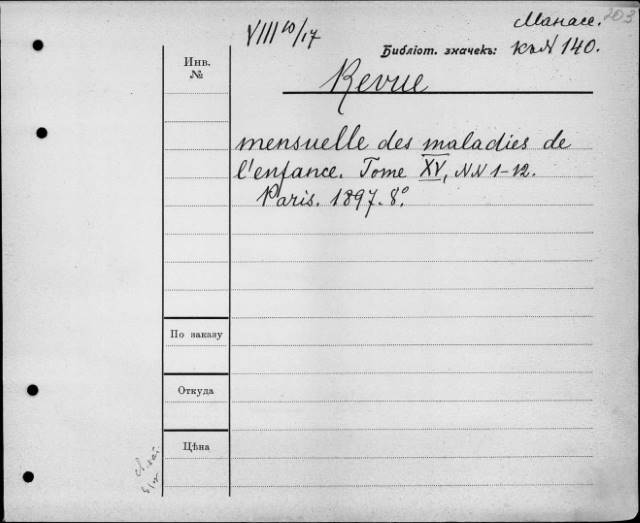 203
Манасе.
VIII 10/17
Библіот. значекъ: КъN 140.
Инв.
№
Revue
mensuelle des maladies de
l'enfance. Tome XV, NN 1-12.
Paris. 1897. 8°.
По заказу
Откуда
Цѣна